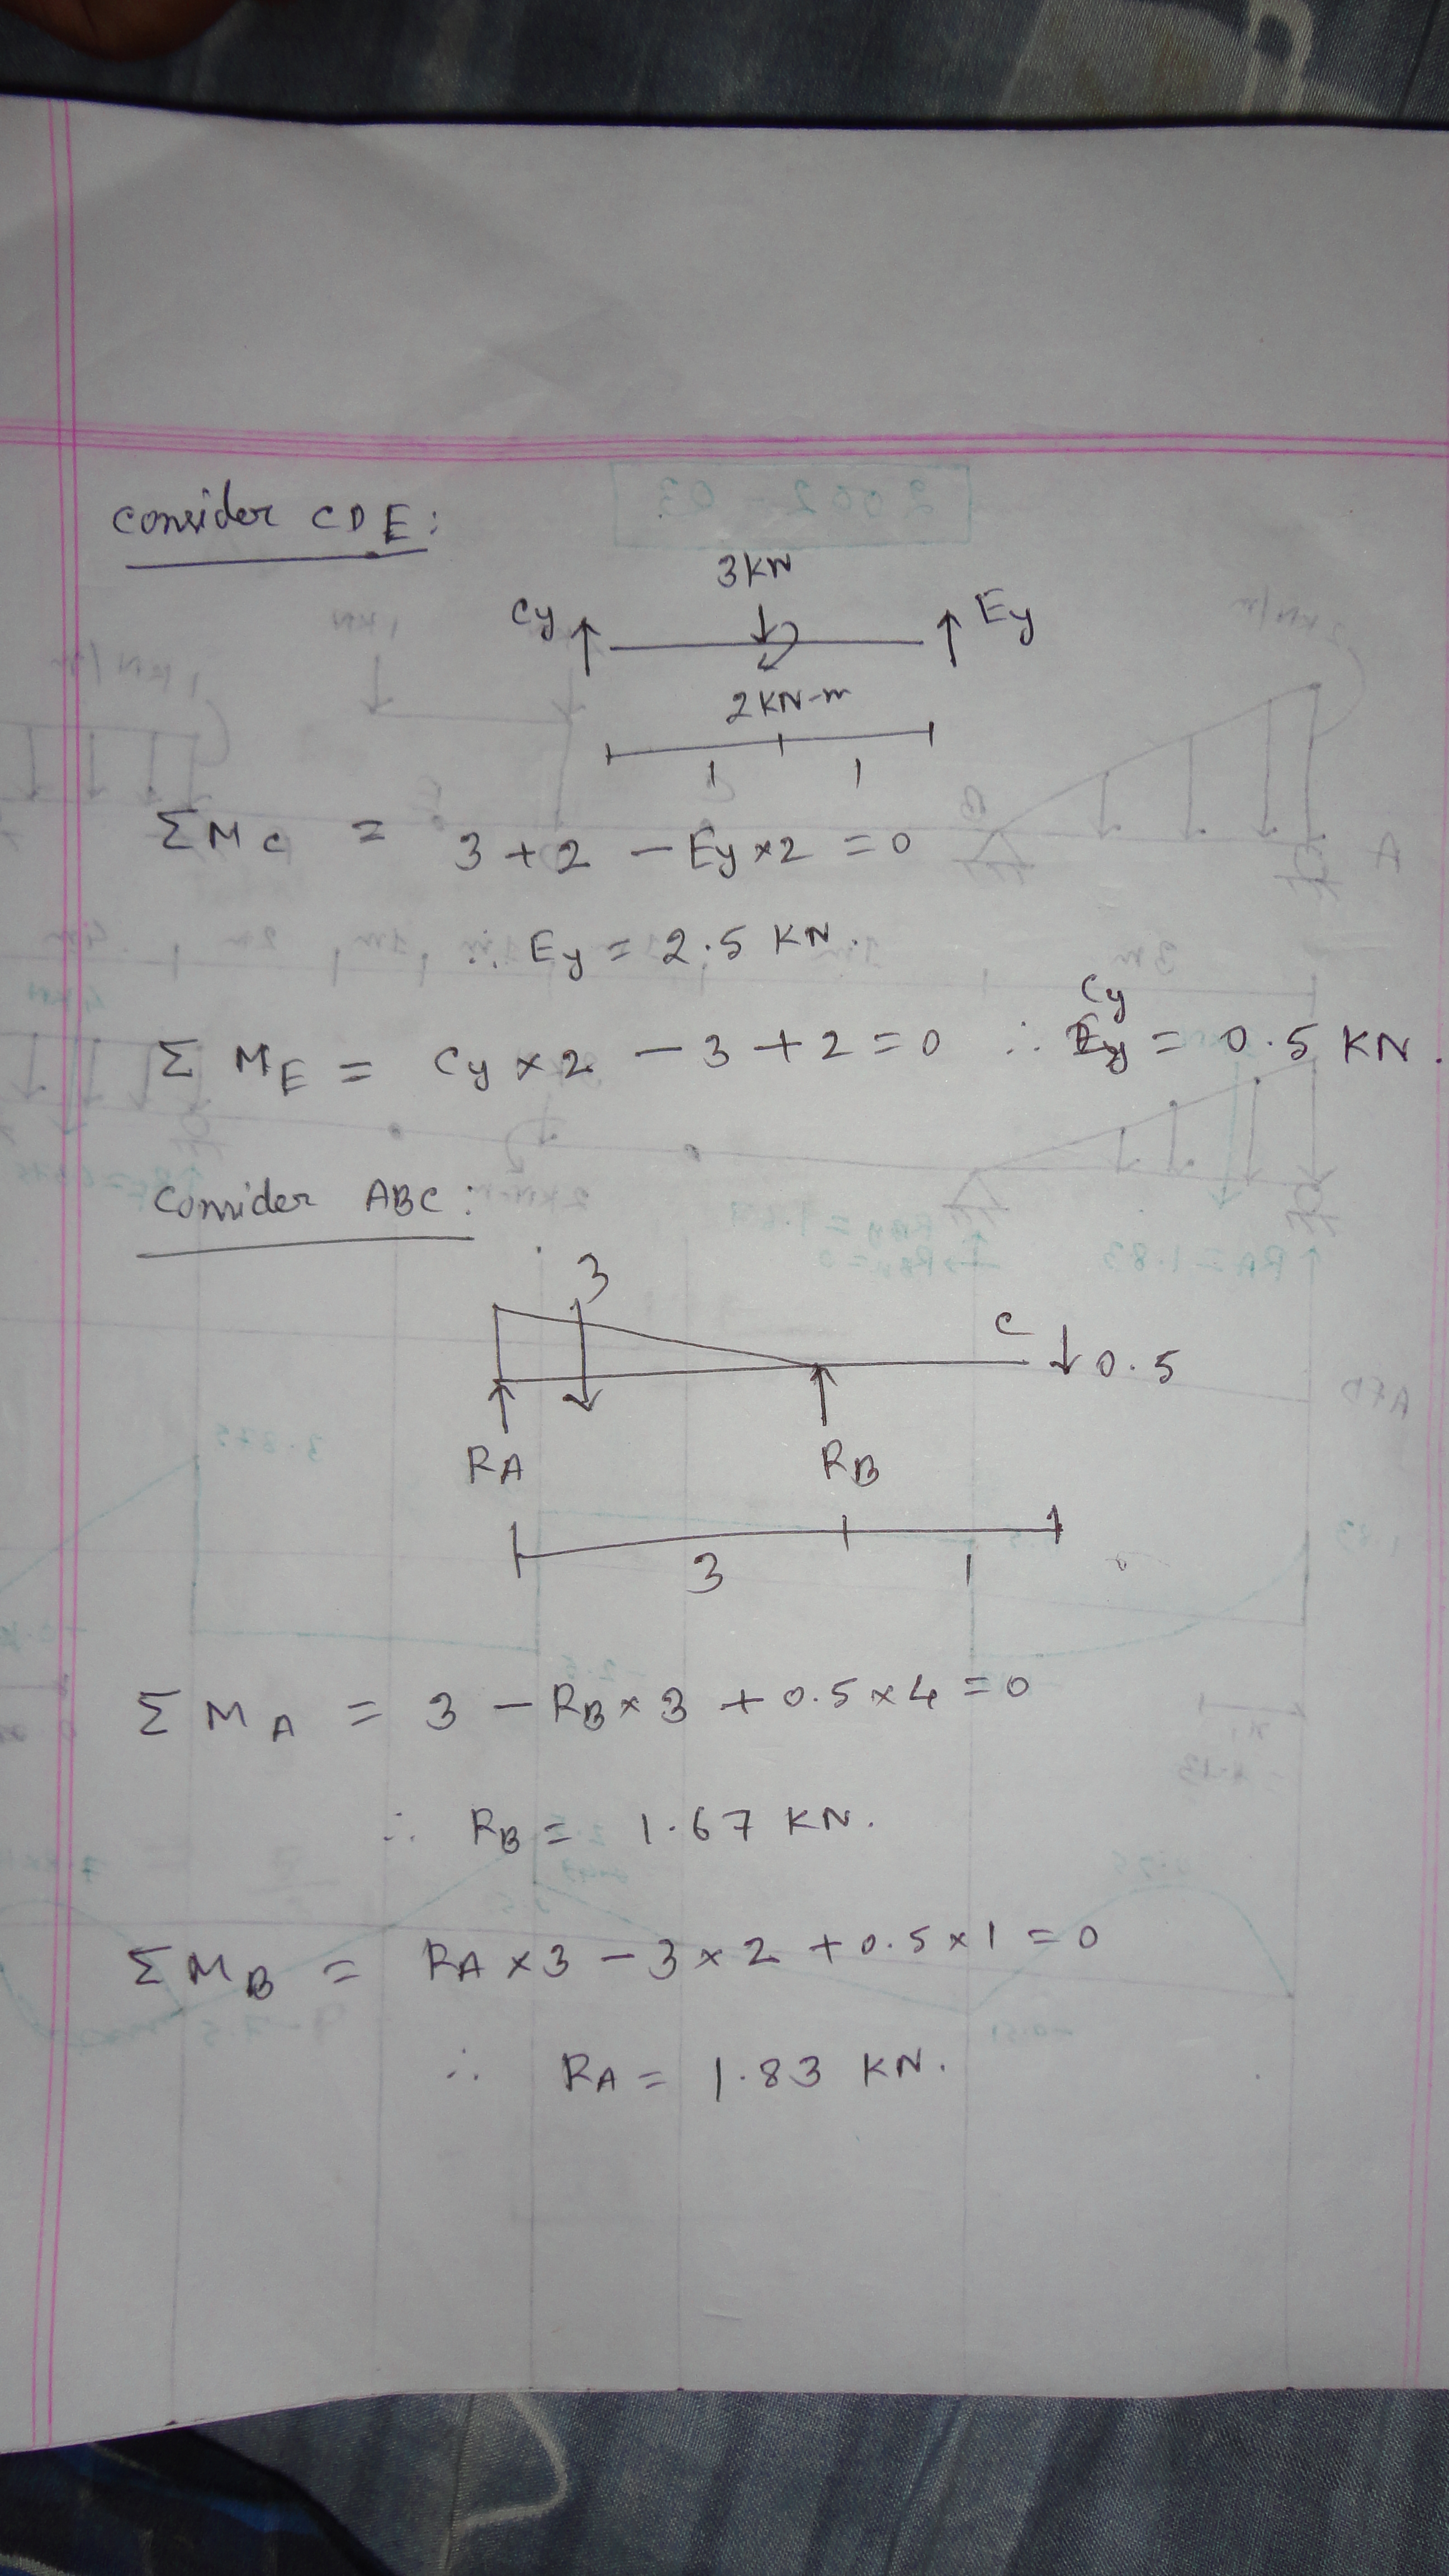 consider CDE:
3KN
Cy
Ey
2KN-m
1 1
ΣMC = 3 + 2 - Ey×2 = 0
∴ Ey = 2.5 KN.
Cy
ΣME = Cy×2 - 3 + 2 = 0 ∴ = 0.5 KN.
Consider ABC:
3
C
0.5
RA RB
3 1
ΣMA = 3 - RB×3 + 0.5×4 = 0
∴ RB = 1.67 KN.
ΣMB = RA×3 - 3×2 + 0.5×1 = 0
∴ RA = 1.83 KN.